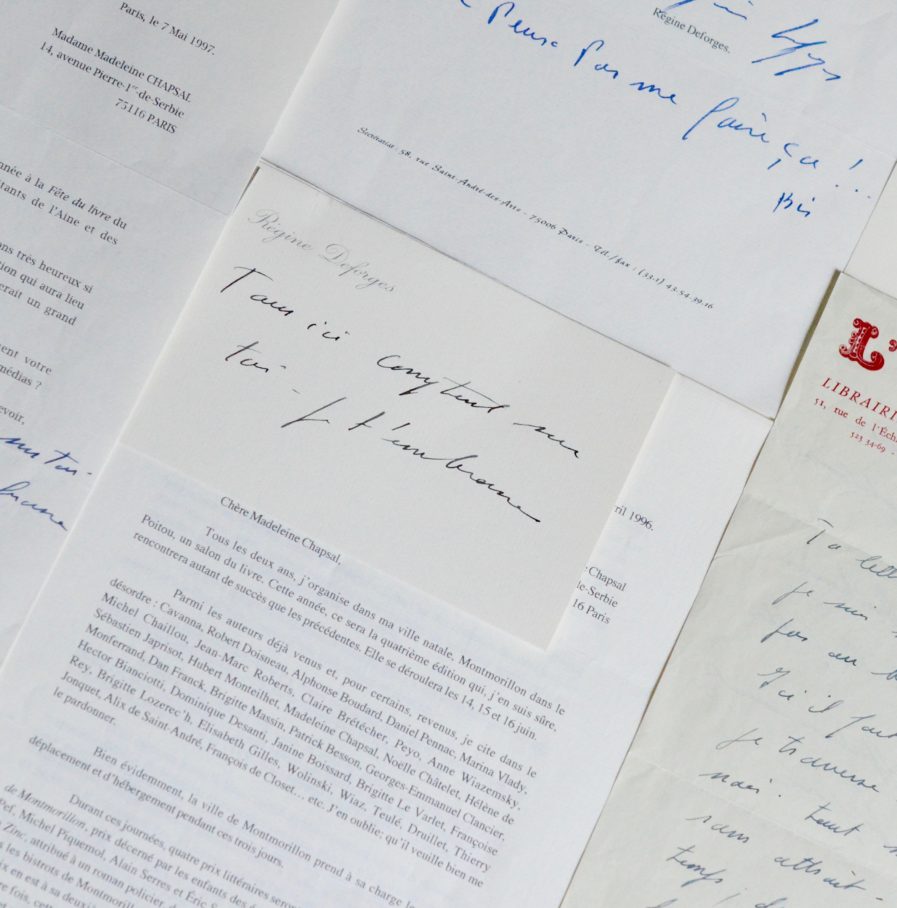 Paris, le 7 Mai 1997.
Madame Madeleine CHAPSAL
14, avenue Pierre-1er-de-Serbie
75116 PARIS
année à la Fête du livre du
tants de l'Aine et des
ons très heureux si
ion qui aura lieu
erait un grand
ent votre
médias ?
evoir,
Régine Deforges.
pas me faire ça !
Secrétariat, 58, rue Saint-André-des-Arts - 75006 Paris - Tél./fax : (33-1) 43.54.39.16
Régine Deforges
toi - Je t'embrasse
ril 1996.
Chapsal
le-Serbie
16 Paris
Chère Madeleine Chapsal,
Tous les deux ans, j'organise dans ma ville natale, Montmorillon dans le
Poitou, un salon du livre. Cette année, ce sera la quatrième édition qui, j'en suis sûre,
rencontrera autant de succès que les précédentes. Elle se déroulera les 14, 15 et 16 juin.
Parmi les auteurs déjà venus et, pour certains, revenus, je cite dans le
désordre : Cavanna, Robert Doisneau, Alphonse Boudard, Daniel Pennac, Marina Vlady,
Michel Chaillou, Jean-Marc Roberts, Claire Brétécher, Peyo, Anne Wiazemsky,
Sébastien Japrisot, Hubert Monteilhet, Madeleine Chapsal, Noëlle Châtelet, Hélène de
Monferrand, Dan Franck, Brigitte Massin, Patrick Besson, Georges-Emmanuel Clancier,
Hector Bianciotti, Dominique Desanti, Janine Boissard, Brigitte Le Varlet, Françoise
Rey, Brigitte Lozerec'h, Elisabeth Gilles, Wolinski, Wiaz, Teulé, Druillet, Thierry
Jonquet, Alix de Saint-André, François de Closet... etc. J'en oublie; qu'il veuille bien me
le pardonner.
Bien évidemment, la ville de Montmorillon prend à sa charge le
déplacement et d'hébergement pendant ces trois jours.
Durant ces journées, quatre prix littéraires seron
de Montmorillon, prix décerné par les enfants des
Pef, Michel Piquemol, Alain Serres et Éric
Zinc, attribué à un roman policier, d
les bistrots de Montmor
en est à sa deuxi
fois, cett
L'
LIBRAIRI
51, rue de l'Éch
523 54-69 -
je traverse
tout
sans attrait -
temps